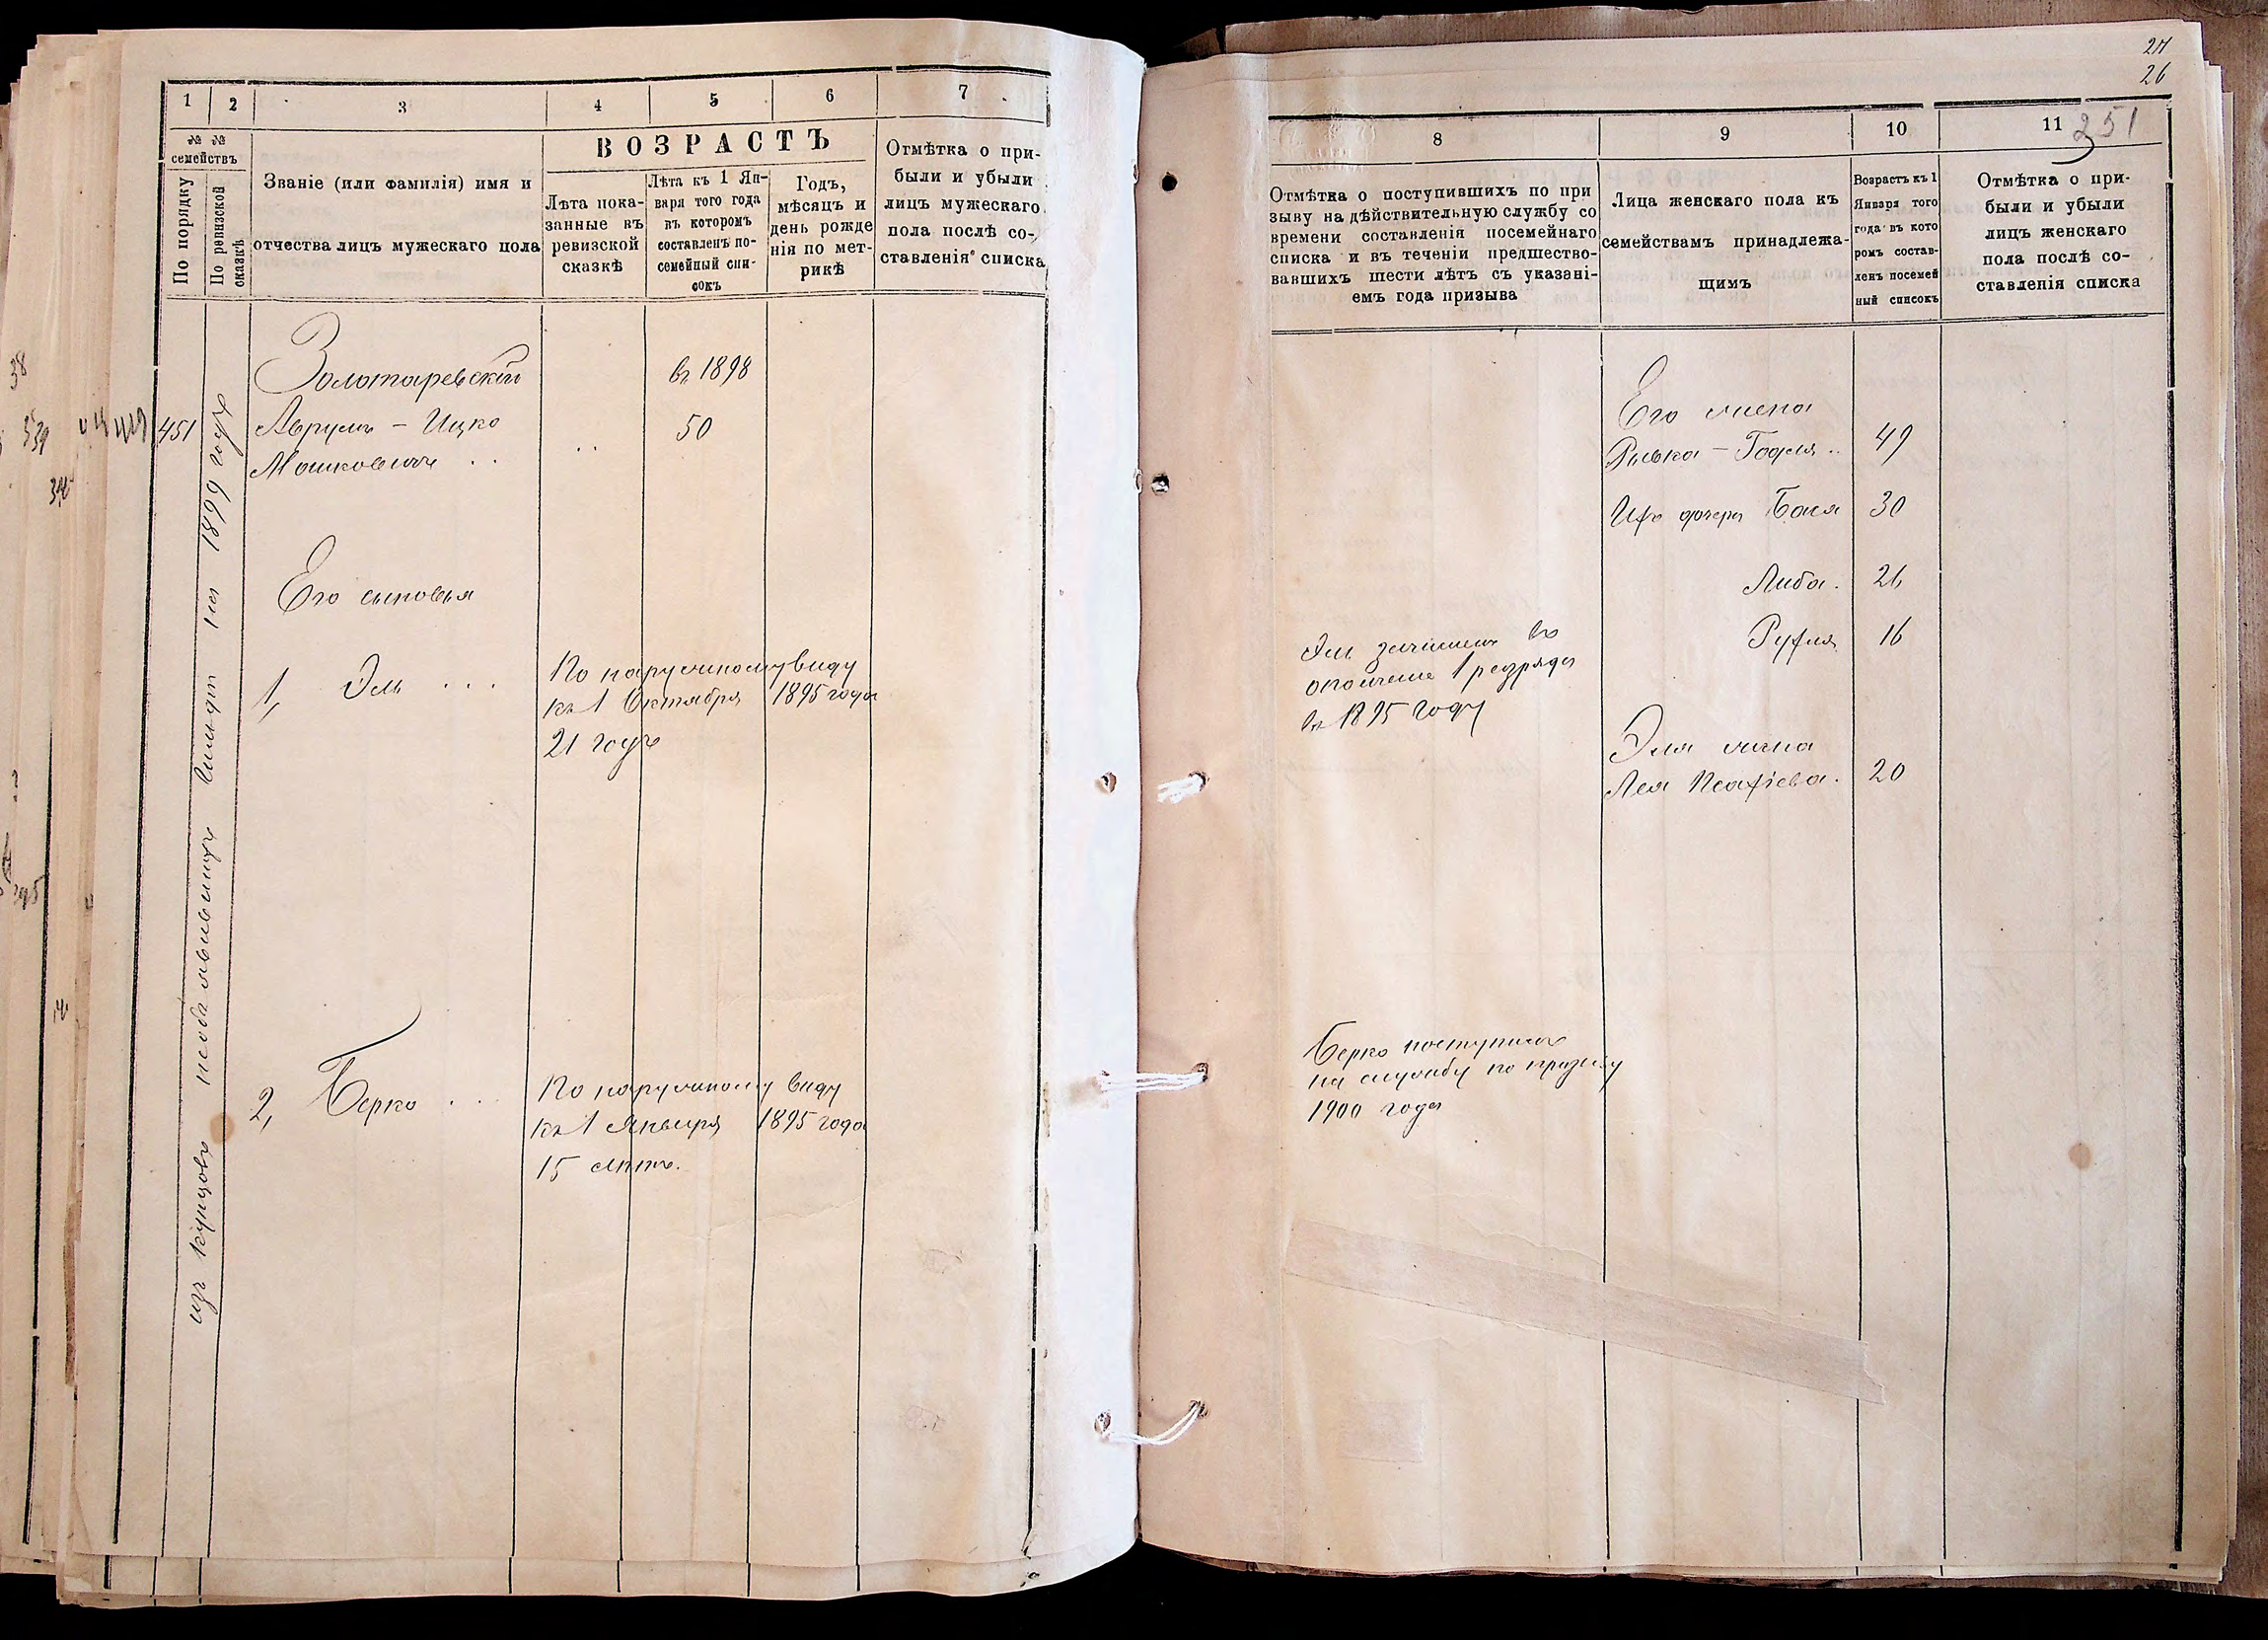 1
2
3
4
5
6
7
№ №
семействъ
По порядку
По ревизской
сказкѣ
Званіе (или фамилія) имя и
отчества лицъ мужескаго пола
ВОЗРАСТЪ
Лѣта пока-
занные въ
ревизской
сказкѣ
Лѣта къ 1 Ян-
варя того года
въ которомъ
составленъ по-
семейный спи-
сокъ
Годъ,
мѣсяцъ и
день рожде
нія по мет-
рикѣ
Отмѣтка о при-
были и убыли
лицъ мужескаго
пола послѣ со-
ставленія списка
Золотаревскій
въ 1898
451
Аврумъ - Ицко
50
Мошковичъ . .
Его сыновья
1, Эль . . .
По наружному виду
къ 1 Октября 1895 года
21 годъ
2, Берко . . .
По наружному виду
къ 1 Января 1895 года
15 лѣтъ.
изъ купцовъ на 1899 годъ
26
251
8
9
10
11
Отмѣтка о поступившихъ по при
зыву на дѣйствительную службу со
времени составленія посемейнаго
списка и въ теченіи предшество-
вавшихъ шести лѣтъ съ указані-
емъ года призыва
Лица женскаго пола къ
семействамъ принадлежа-
щимъ
Возрастъ къ 1
Января того
года въ кото
ромъ состав-
ленъ посемей
ный списокъ
Отмѣтка о при-
были и убыли
лицъ женскаго
пола послѣ со-
ставленія списка
Его жена
Ривка - Годля .. 49
Ихъ дочери Бася 30
Либа . 26
Рухля 16
Эль зачисленъ въ
ополченіе 1 разряда
въ 1895 году
Эля жена
Лея Псахіева . 20
Берко поступилъ
на службу по призыву
1900 года